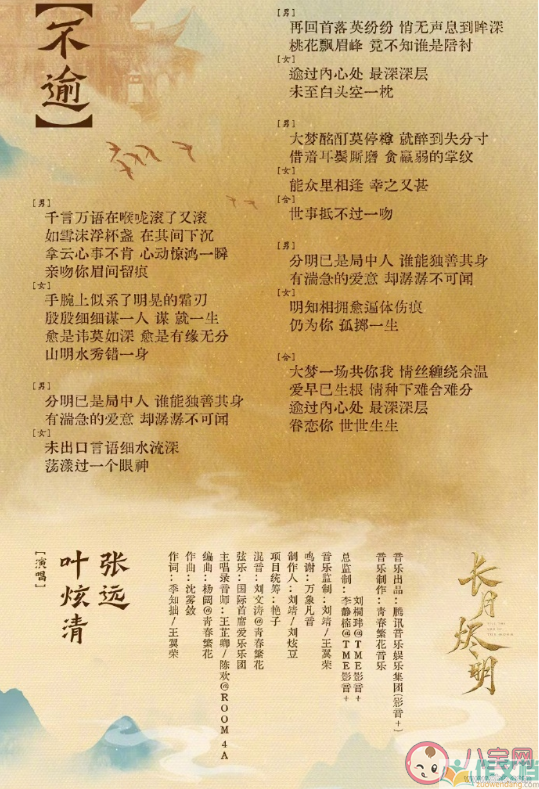 【不逾】
[男]
千言万语在喉咙滚了又滚
如雪沫浮杯盏 在其间下沉
拿云心事不肯 心动惊鸿一瞬
亲吻你眉间留痕
[女]
手腕上似系了明晃的霜刃
殷殷细细谋一人 谋 就一生
愈是讳莫如深 愈是有缘无分
山明水秀错一身
[男]
分明已是局中人 谁能独善其身
有湍急的爱意 却潺潺不可闻
[女]
未出口言语细水流深
荡漾过一个眼神
[男]
再回首落英纷纷 情无声息到眸深
桃花飘眉峰 竟不知谁是陪衬
[女]
逾过内心处 最深深层
未至白头空一枕
[男]
大梦酩酊莫停樽 就醉到失分寸
借着耳鬓厮磨 贪羸弱的掌纹
[女]
能众里相逢 幸之又甚
[合]
世事抵不过一吻
[男]
分明已是局中人 谁能独善其身
有湍急的爱意 却潺潺不可闻
[女]
明知相拥愈遍体伤痕
仍为你 孤掷一生
[合]
大梦一场共你我 情丝缠绕余温
爱早已生根 情种下难舍难分
逾过内心处 最深深层
眷恋你 世世生生
长月烬明
音乐出品：腾讯音乐娱乐集团(影音+)
音乐制作：青春繁花音乐
刘桐玮@TME影音+
总监制：李静楠@TME影音+
音乐监制：刘靖/王翼荣
鸣谢：万象凡音
制作人：刘靖/刘炫豆
项目统筹：艳子
混音：刘文涛@青春繁花
弦乐：国际首席爱乐乐团
主唱录音师：王芷卿/陈欢@ROOM 4A
编曲：杨阔@青春繁花
作曲：沈雾敛
作词：李知拙/王翼荣
张远
叶炫清
[演唱]
八宝网
作文档
www.zuowendang.com